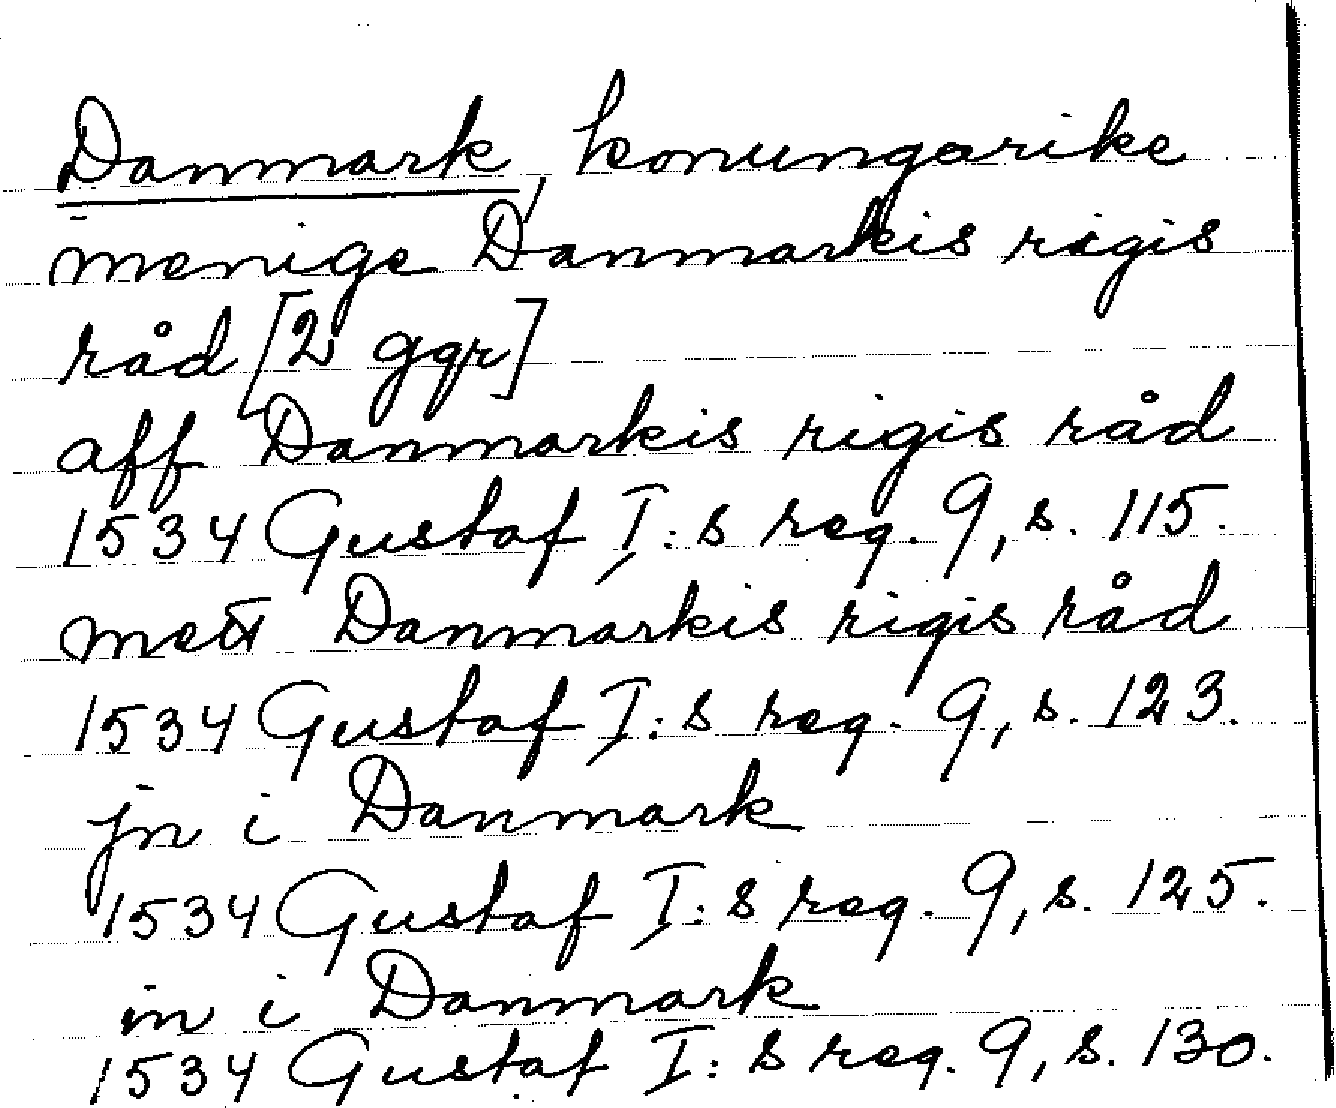 Danmark, konungarike
menige Danmarkis rigis
råd [2 ggr]
aff Danmarkis rigis råd
1534 Gustaf I:s reg. 9, s. 115.
mett Danmarkis rigis råd
1534 Gustaf I:s reg. 9, s. 123.
jn i Danmark
1534 Gustaf I:s reg. 9, s. 125.
in i Danmark
1534 Gustaf I:s reg. 9, s. 130.